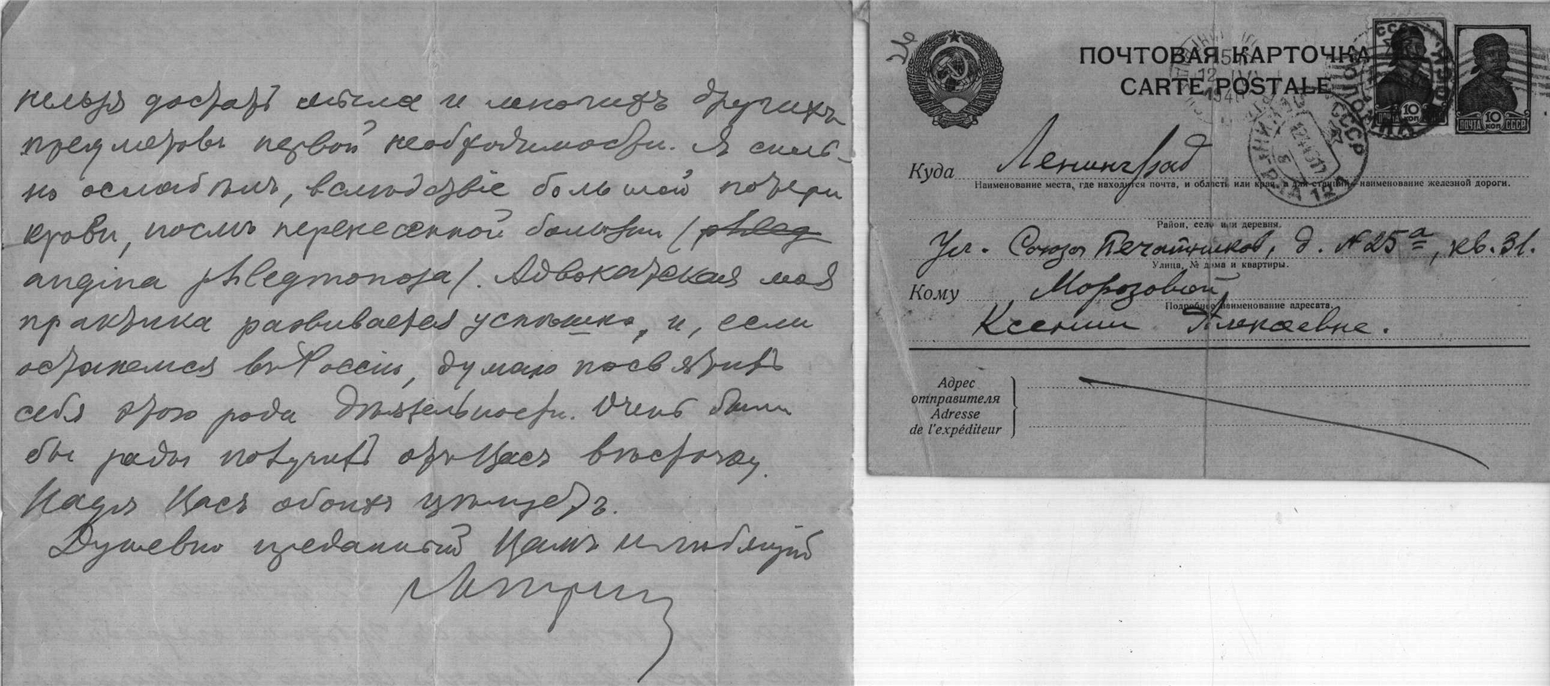 нельзя достать мыла и многихъ другихъ
предметовъ первой необходимости. Я силь-
но ослабѣлъ, вслѣдствіе большой потери
крови, послѣ перенесенной болѣзни / phleg
angina phlegmonosa/. Адвокатская моя
практика развивается успѣшно, и, если
останемся въ Россіи, думаю посвятить
себя этого рода дѣятельности. Очень были
бы рады получить отъ Васъ вѣсточку.
Надя Васъ обоихъ цѣлуетъ.
Душевно преданный Вамъ и любящій
26
ПОЧТОВАЯ КАРТОЧКА
CARTE POSTALE
ПОЧТА 10 КОП СССР
Куда Ленинград
Наименование места, где находится почта, и область или край, а для станций — наименование железной дороги.
Район, село или деревня.
Ул. Союза Печатников, д. №25а, кв. 31.
Улица, № дома и квартиры.
Кому Морозовой
Подробное наименование адресата.
Ксении Алексеевне.
Адрес
отправителя
Adresse
de l'expéditeur